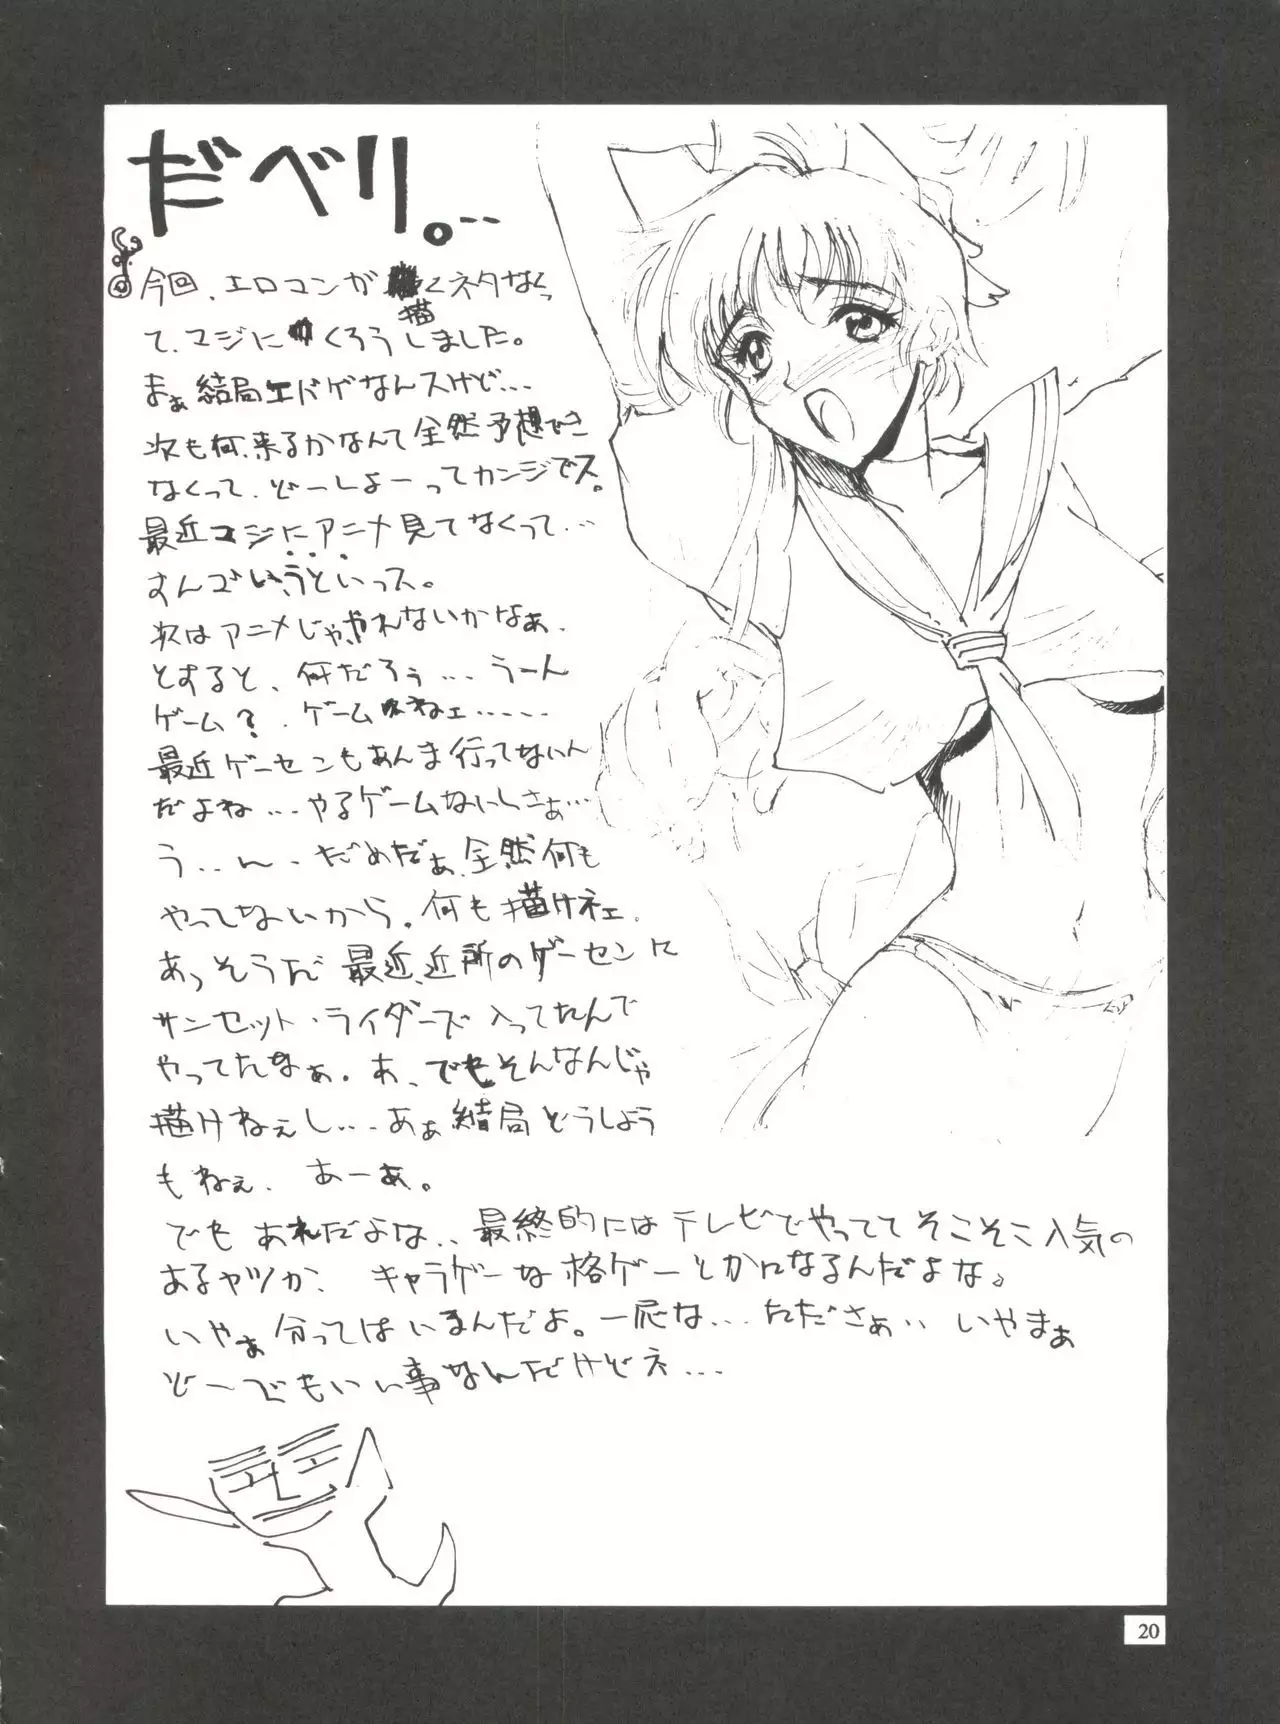 だべり。…
今回、エロマンガ描くネタなくっ
て、マジにくろうしました。
まぁ結局エドゲなんスけど…
次も何、来るかなんて全然予想でき
なくって、どーしよーってカンジでス。
最近マジにアニメ見てなくって…
次はアニメじゃ、やれないかなぁ、
とすると、何だろぅ…うーん
ゲーム?、ゲームねェ……
最近ゲーセンもあんま行ってないん
だよね…やるゲームないしさぁ…
う..ん、だめだぁ、全然何も
やってないから。何も描けネェ、
あっそうだ 最近、近所のゲーセンに
サンセット・ライダーズ入ってたんで
やってたなぁ。あ、でもそんなんじゃ
描けねぇし…あぁ結局どうしよう
もねぇ、あーぁ。
でも あれだよな、、最終的にはテレビでやってて そこそこ人気の
あるヤツか、キャラゲーな格ゲーとかになるんだよな。
いやぁ分ってはいるんだよ。一応な…たださぁ、、いやまぁ
どーでもいい事なんだけどネ…
20